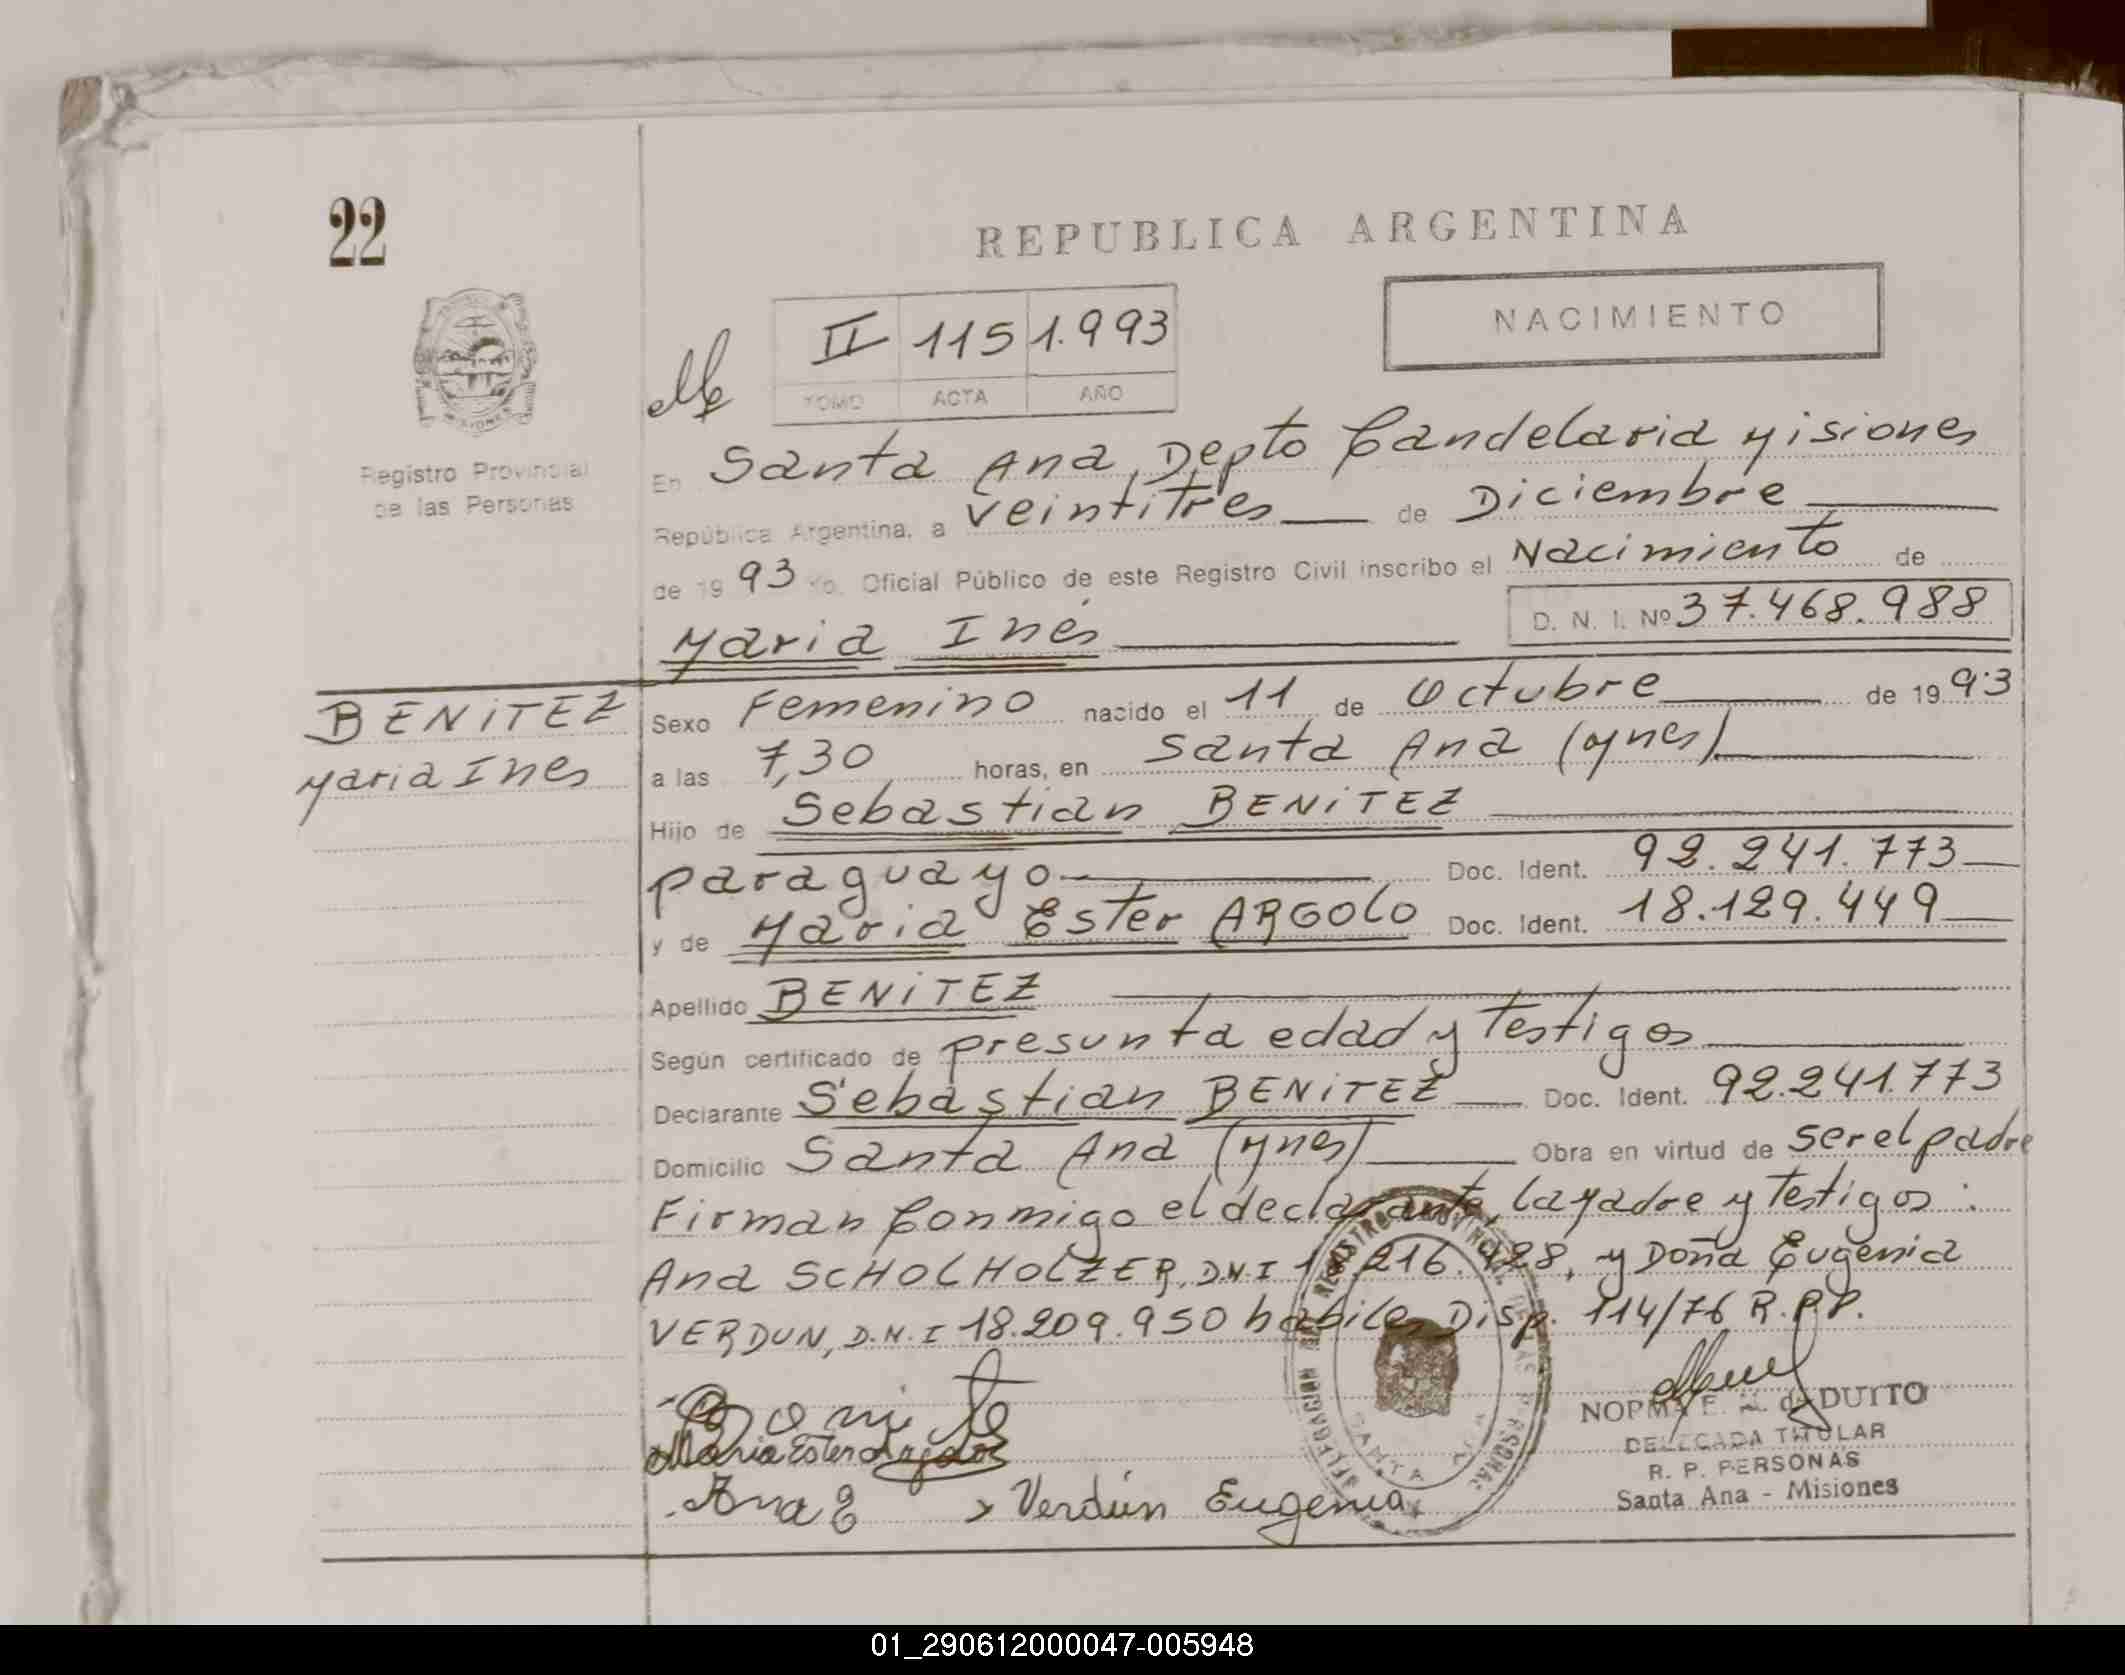 22
REPUBLICA ARGENTINA
NACIMIENTO
II 115 1.993
TOMO ACTA AÑO
Registro Provincial
de las Personas
En Santa Ana, Depto Candelaria Misiones
República Argentina, a veintitres de Diciembre
de 1993 Yo, Oficial Público de este Registro Civil inscribo el Nacimiento de
Maria Inés D. N. I. Nº 37.468.988
BENITEZ
Maria Ines
Sexo Femenino nacido el 11 de Octubre de 1993
a las 7,30 horas, en Santa Ana (Mnes)
Hijo de Sebastian BENITEZ
paraguayo Doc. Ident. 92.241.773
y de Maria Ester ARGOLO Doc. Ident. 18.129.449
Apellido BENITEZ
Según certificado de presunta edad y Testigos
Declarante Sebastian BENITEZ Doc. Ident. 92.241.773
Domicilio Santa Ana (Mnes) Obra en virtud de ser el padre
Firman Conmigo el declarante, la Madre y Testigos:
Ana SCHOLHOLZER, D.N.I 216.428, y Doña Eugenia
VERDUN, D.N.I 18.209.950 habiles Disp. 114/76 R.P.P.
Maria Ester
Ana E Verdún Eugenia
NORMA E. de DUITO
DELEGADA TITULAR
R. P. PERSONAS
Santa Ana - Misiones
DELEGACION REGISTRO PROVINCIAL DE LAS PERSONAS
SANTA ANA
01_290612000047-005948